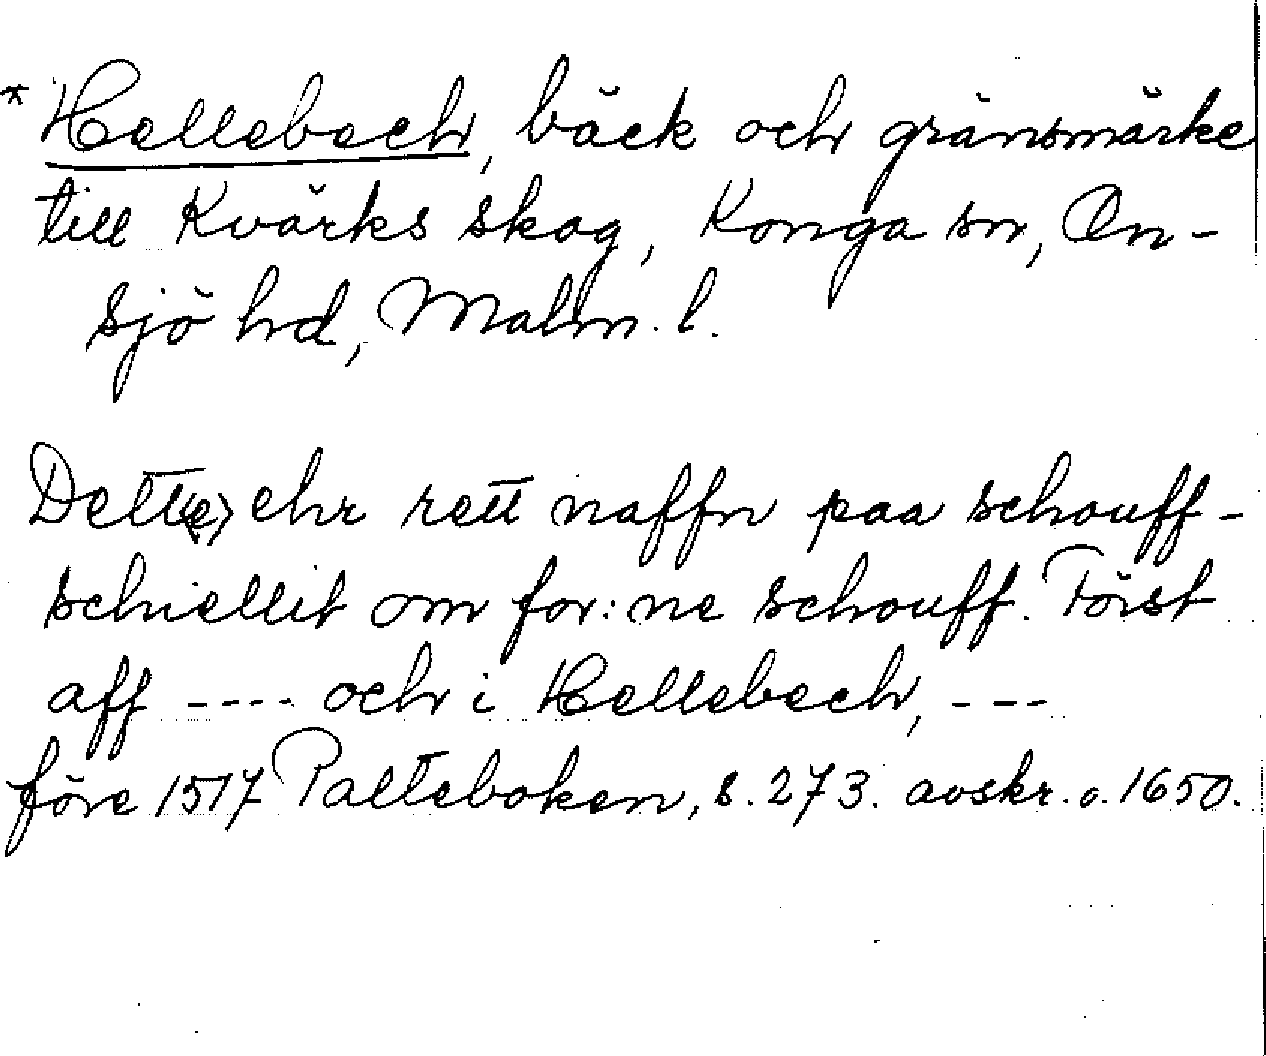 * Hellebech, bäck och gränsmärke
till Kvärks skog, Konga sn, On-
sjö hd, Malm. l.
Dett⟨e⟩ ehr rett naffn paa schouff-
schiellit om for:ne schouff. Först
aff ---- och i Hellebech, ---
före 1517 Palteboken, s. 273. avskr. o. 1650.